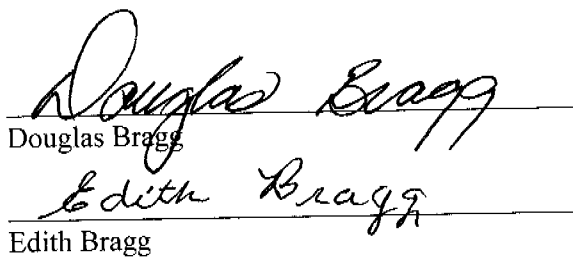 Douglas Bragg
Douglas Bragg
Edith Bragg
Edith Bragg